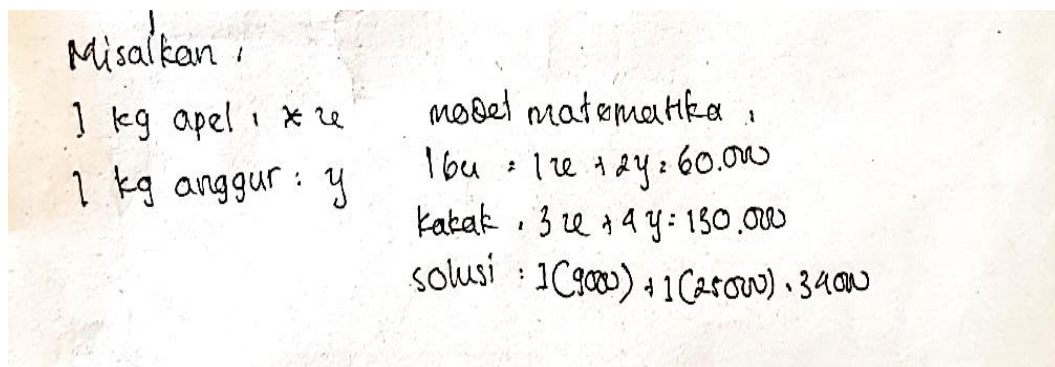 Misalkan :
1 kg apel : x
1 kg anggur : y
model matematika :
Ibu : 1x + 2y = 60.000
kakak : 3x + 4y = 130.000
solusi : 1(9000) + 1(25000) = 34000